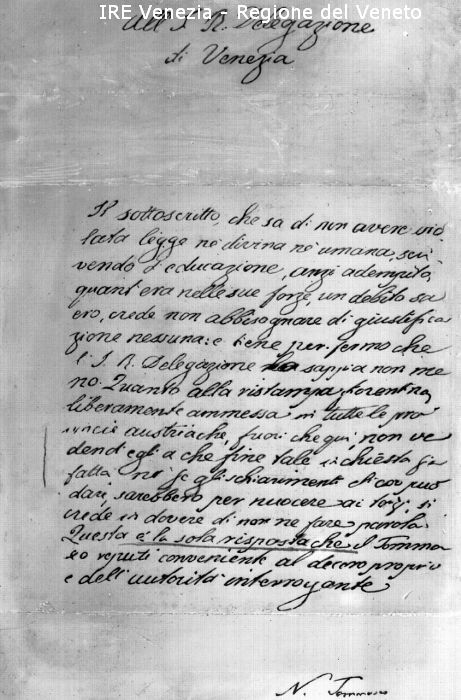 IRE Venezia - Regione del Veneto
All'I. R. Delegazione
di Venezia
Il sottoscritto, che sa di non avere vio
lata legge nè divina nè umana, scri
vendo d'educazione, anzi adempito,
quant'era nelle sue forze, un debito sa
cro, crede non abbisognare di giustifica
zione nessuna: e tiene per fermo che
l'I. R. Delegazione sappia non me
no. Quanto alla ristampa fiorentina
liberamente ammessa in tutte le pro
vincie austriache, fuori che qui, non ve
dend'egli a che fine tale inchiesta sia
fatta, nè se gli schiarimenti ch'
dare, sarebbero per nuocere ai terzi, si
crede in dovere di non ne fare parola.
Questa è la sola risposta che il Tomma
seo reputi conveniente al decoro proprio
e dell'autorità interrogante
N. Tommaseo